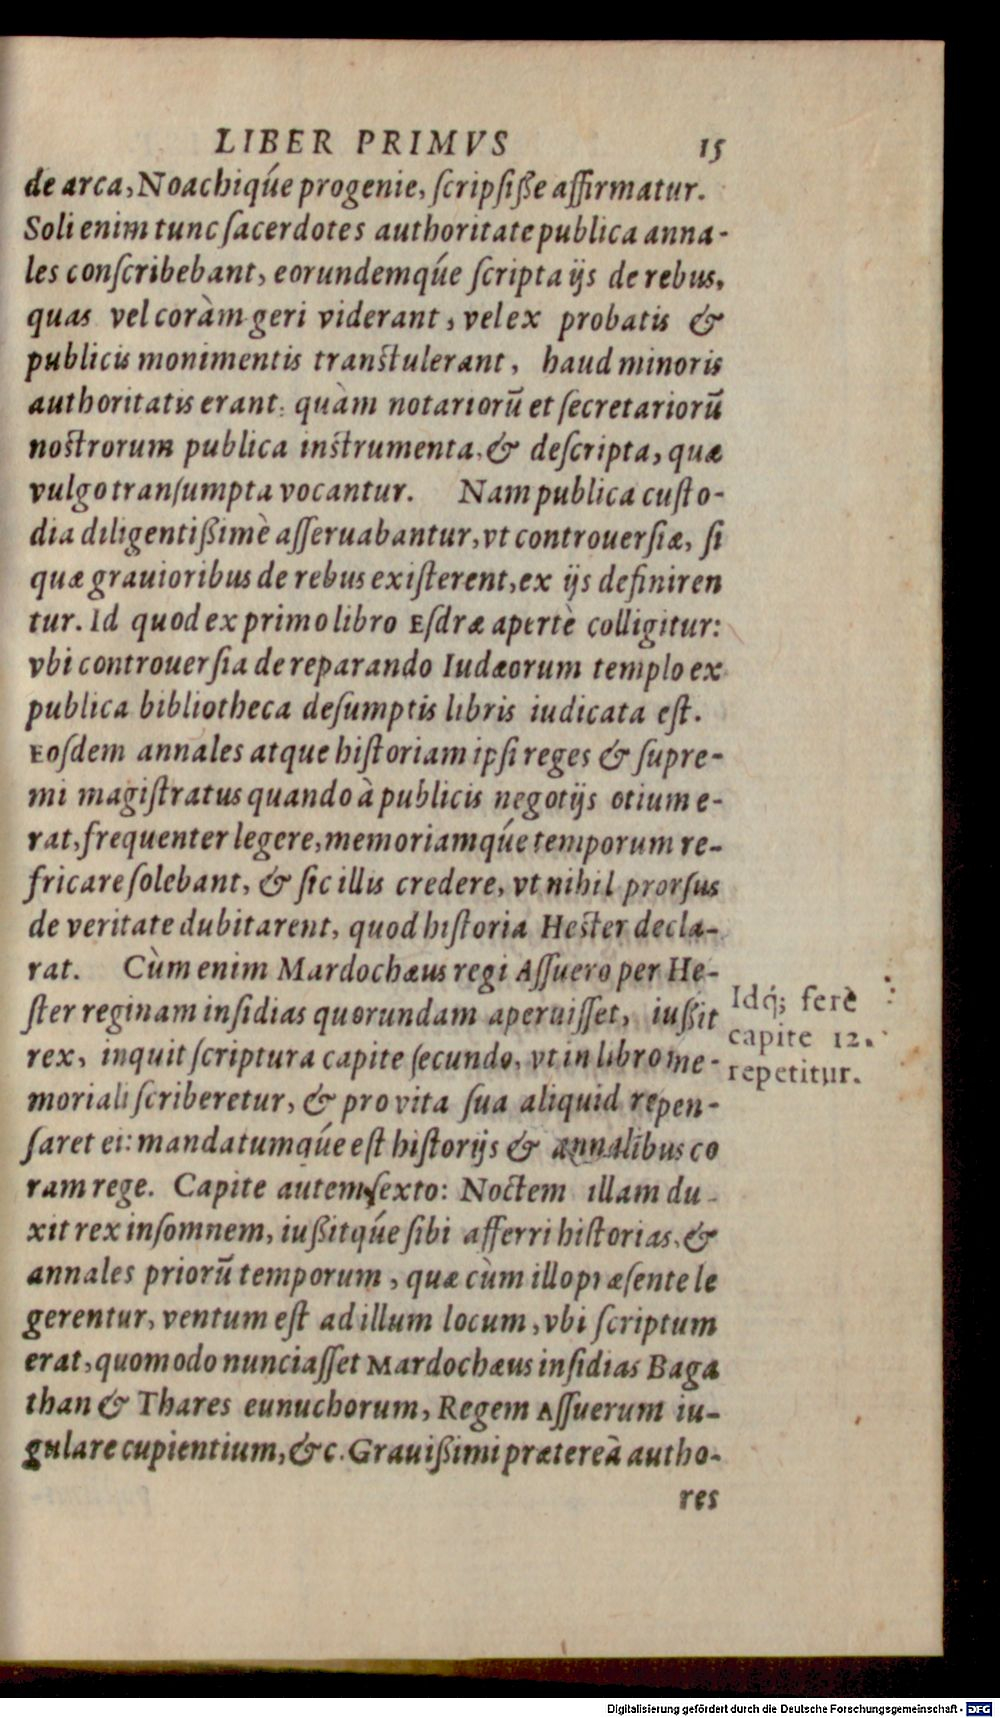 LIBER PRIMVS 15
de arca, Noachiqúe progenie, ſcripſiße affirmatur.
Soli enim tunc ſacerdotes authoritate publica anna-
les conſcribebant, eorundemqúe ſcripta ijs de rebus,
quas vel coràm geri viderant, vel ex probatis &
publicis monimentis transtulerant, haud minoris
authoritatis erant: quàm notariorũ et ſecretariorũ
nostrorum publica instrumenta, & deſcripta, quæ
vulgo tranſumpta vocantur. Nam publica cuſto-
dia diligentißimè aſſeruabantur, vt controuerſiæ, ſi
quæ grauioribus de rebus exiſterent, ex ijs definiren
tur. Id quod ex primo libro Eſdræ apertè colligitur:
vbi controuerſia de reparando Iudæorum templo ex
publica bibliotheca deſumptis libris iudicata eſt.
Eoſdem annales atque hiſtoriam ipſi reges & ſupre-
mi magiſtratus quando à publicis negotijs otium e-
rat, frequenter legere, memoriamqúe temporum re-
fricare ſolebant, & ſic illis credere, vt nihil prorſus
de veritate dubitarent, quod hiſtoria Hester decla-
rat. Cùm enim Mardochæus regi Aſſuero per He-
ſter reginam inſidias quorundam aperuiſſet, iußit
rex, inquit ſcriptura capite ſecundo, vt in libro me-
moriali ſcriberetur, & pro vita ſua aliquid repen-
ſaret ei: mandatumqúe eſt hiſtorijs & annalibus co
ram rege. Capite autem ſexto: Noctem illam du-
xit rex inſomnem, iußitqúe ſibi afferri hiſtorias, &
annales priorũ temporum, quæ cùm illo præſente le
gerentur, ventum eſt ad illum locum, vbi ſcriptum
erat, quomodo nunciaſſet Mardochæus inſidias Baga
than & Thares eunuchorum, Regem Aſſuerum iu-
gulare cupientium, &c. Grauißimi prætereà autho-
res
Idq́; ferè
capite 12.
repetitur.
Digitalisierung gefördert durch die Deutsche Forschungsgemeinschaft - DFG